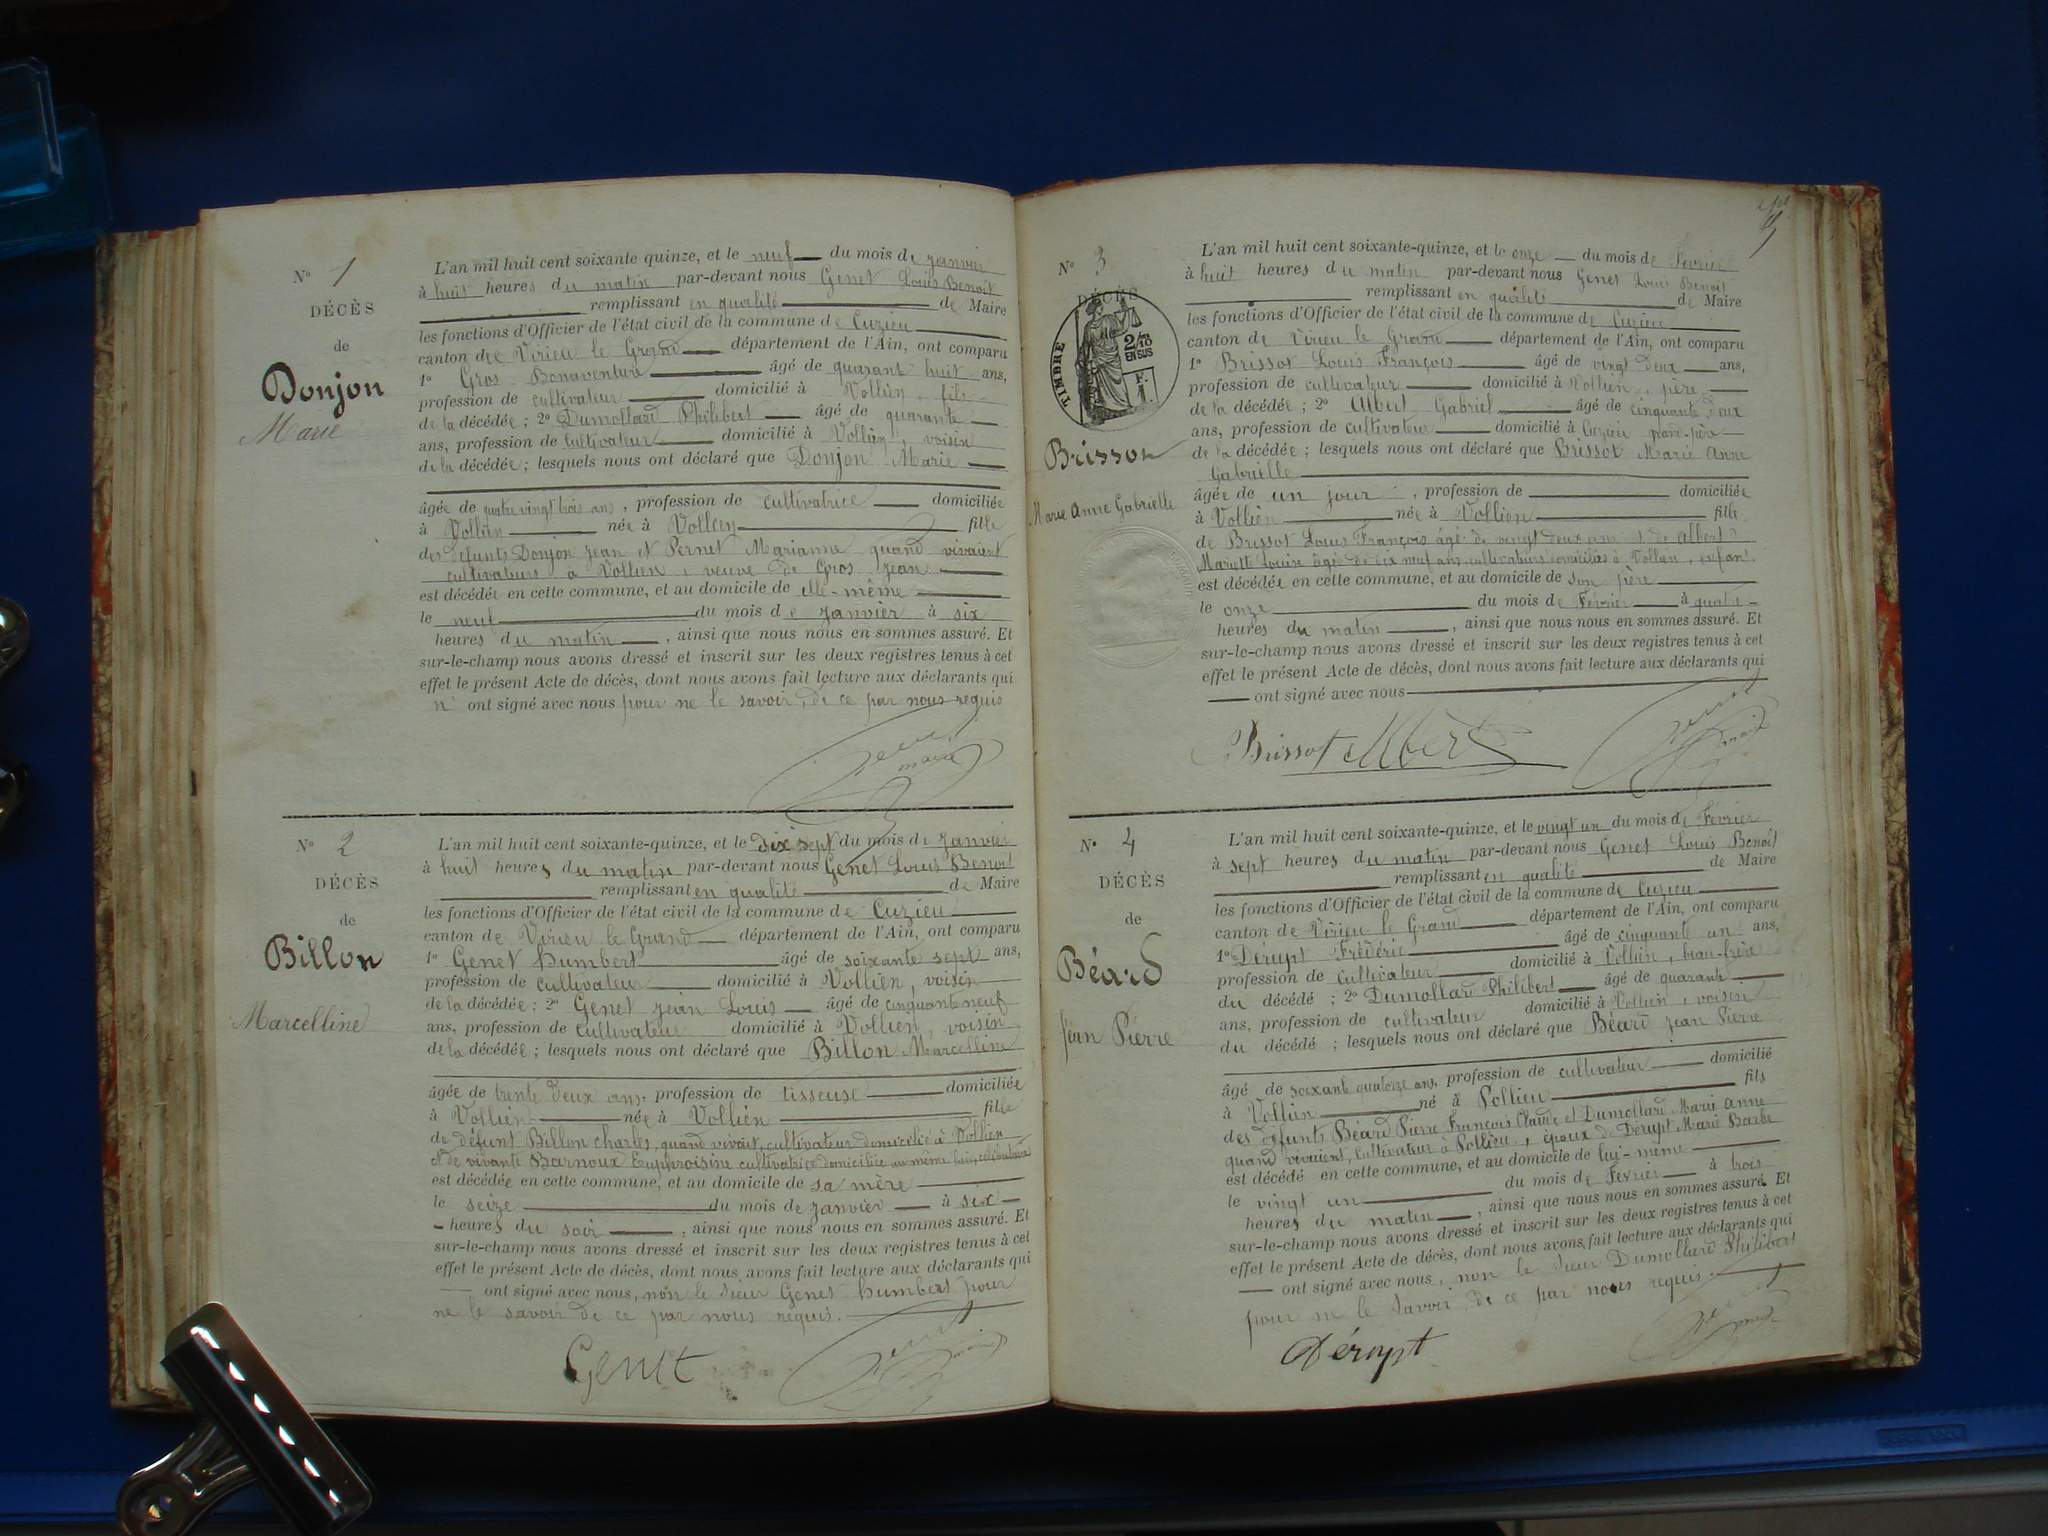 N° 1
DÉCÈS
de
Donjon
Marie
L'an mil huit cent soixante quinze, et le neuf du mois de janvier
à huit heures du matin par-devant nous Genet Louis Benoit
remplissant en qualité de Maire
les fonctions d'Officier de l'état civil de la commune de Cuzieu
canton de Virieu le Grand département de l'Ain, ont comparu
1° Gros Bonaventure âgé de quarant huit ans,
profession de cultivateur domicilié à Vollien, fils
de la décédée ; 2° Dumollard Philibert âgé de quarante
ans, profession de cultivateur domicilié à Vollien, voisin
de la décédée ; lesquels nous ont déclaré que Donjon Marie
âgée de quatre vingt trois ans, profession de cultivatrice domiciliée
à Vollien née à Vollien fille
des défunts Donjon Jean et Pernet Marianne quand vivaient
cultivateurs à Vollien, veuve de Gros Jean
est décédée en cette commune, et au domicile de elle-même
le neuf du mois de janvier à six
heures du matin, ainsi que nous nous en sommes assuré. Et
sur-le-champ nous avons dressé et inscrit sur les deux registres tenus à cet
effet le présent Acte de décès, dont nous avons fait lecture aux déclarants qui
n' ont signé avec nous pour ne le savoir, de ce par nous requis
Genet
maire
N° 2
DÉCÈS
de
Billon
Marcelline
L'an mil huit cent soixante-quinze, et le dix sept du mois de janvier
à huit heures du matin par-devant nous Genet Louis Benoit
remplissant en qualité de Maire
les fonctions d'Officier de l'état civil de la commune de Cuzieu
canton de Virieu le Grand département de l'Ain, ont comparu
1° Genet humbert âgé de soixante sept ans,
profession de cultivateur domicilié à Vollien, voisin
de la décédée ; 2° Genet Jean Louis âgé de cinquante neuf
ans, profession de cultivateur domicilié à Vollien, voisin
de la décédée ; lesquels nous ont déclaré que Billon Marcelline
âgée de trente deux ans, profession de tisseuse domiciliée
à Vollien née à Vollien fille
de défunt Billon Charles, quand vivait, cultivateur domicilié à Vollien
et de vivante Barnoux Euphroisine cultivatrice domiciliée au même lieu, célibataire
est décédée en cette commune, et au domicile de sa mère
le seize du mois de janvier à six
heures du soir, ainsi que nous nous en sommes assuré. Et
sur-le-champ nous avons dressé et inscrit sur les deux registres tenus à cet
effet le présent Acte de décès, dont nous avons fait lecture aux déclarants qui
ont signé avec nous, non le sieur Genet humbert pour
ne le savoir de ce par nous requis.
Genet
Genet
maire
N° 3
DÉCÈS
TIMBRE
2/10
EN SUS
F.
1.
Brissot
Marie Anne Gabrielle
L'an mil huit cent soixante-quinze, et le onze du mois de Février
à huit heures du matin par-devant nous Genet Louis Benoit
remplissant en qualité de Maire
les fonctions d'Officier de l'état civil de la commune de Cuzieu
canton de Virieu le Grand département de l'Ain, ont comparu
1° Brissot Louis François âgé de vingt deux ans,
profession de cultivateur domicilié à Vollien, père
de la décédée ; 2° Albert Gabriel âgé de cinquante deux
ans, profession de cultivateur domicilié à Cuzieu grand-père
de la décédée ; lesquels nous ont déclaré que Brissot Marie Anne
Gabrielle
âgée de un jour, profession de domiciliée
à Vollien née à Vollien fille
de Brissot Louis François âgé de vingt deux ans et de Albert
Mariette Louise âgée de dix neuf ans, cultivateurs domiciliés à Vollien, enfant
est décédée en cette commune, et au domicile de son père
le onze du mois de Février à quatre
heures du matin, ainsi que nous nous en sommes assuré. Et
sur-le-champ nous avons dressé et inscrit sur les deux registres tenus à cet
effet le présent Acte de décès, dont nous avons fait lecture aux déclarants qui
ont signé avec nous
Brissot Albert
Genet
maire
N° 4
DÉCÈS
de
Béard
Jean Pierre
L'an mil huit cent soixante-quinze, et le vingt un du mois de Février
à sept heures du matin par-devant nous Genet Louis Benoit
remplissant en qualité de Maire
les fonctions d'Officier de l'état civil de la commune de Cuzieu
canton de Virieu le Grand département de l'Ain, ont comparu
1° Dérupt Frédéric âgé de cinquante un ans,
profession de cultivateur domicilié à Vollien, beau-frère
du décédé ; 2° Dumollard Philibert âgé de quarante
ans, profession de cultivateur domicilié à Vollien, voisin
du décédé ; lesquels nous ont déclaré que Béard Jean Pierre
âgé de soixante quatorze ans, profession de cultivateur domicilié
à Vollien né à Pollieu fils
des défunts Béard Pierre François Claude et Dumollard Marie Anne
quand vivaient, cultivateur à Pollieu, époux de Dérupt Marie Barbe
est décédé en cette commune, et au domicile de lui-même
le vingt un du mois de Février à trois
heures du matin, ainsi que nous nous en sommes assuré. Et
sur-le-champ nous avons dressé et inscrit sur les deux registres tenus à cet
effet le présent Acte de décès, dont nous avons fait lecture aux déclarants qui
ont signé avec nous, non le sieur Dumollard Philibert
pour ne le savoir, de ce par nous requis.
Dérupt
Genet
maire